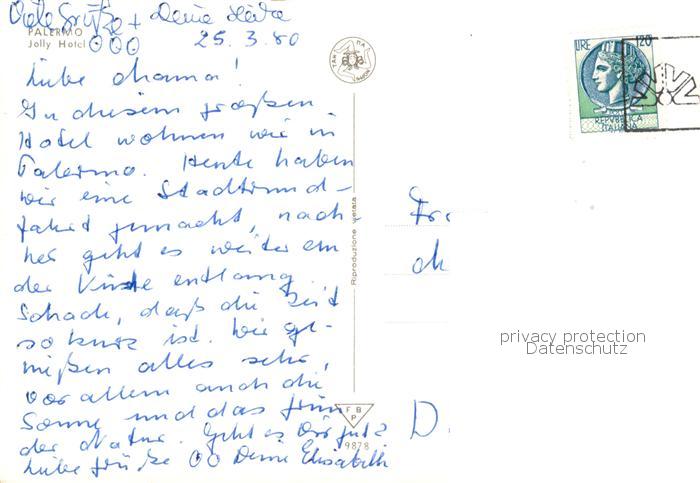 Viele Grüße + Deine Herta
PALERMO
Jolly Hotel
25.3.80
Liebe Mama!
In diesem großen
Hotel wohnen wir in
Palermo. Heute haben
wir eine Stadtrund-
fahrt gemacht, nach-
her geht es weiter an
der Küste entlang.
Schade, daß die Zeit
so kurz ist. Wir ge-
nießen alles sehr,
vor allem auch die
Sonne und das Grün
der Natur. Geht es Dir gut?
Liebe Grüße Deine Elisabeth
Riproduzione vietata
F B
P
9878
LIRE 120
REPVBBLICA
ITALIANA
Fr
D
privacy protection
Datenschutz